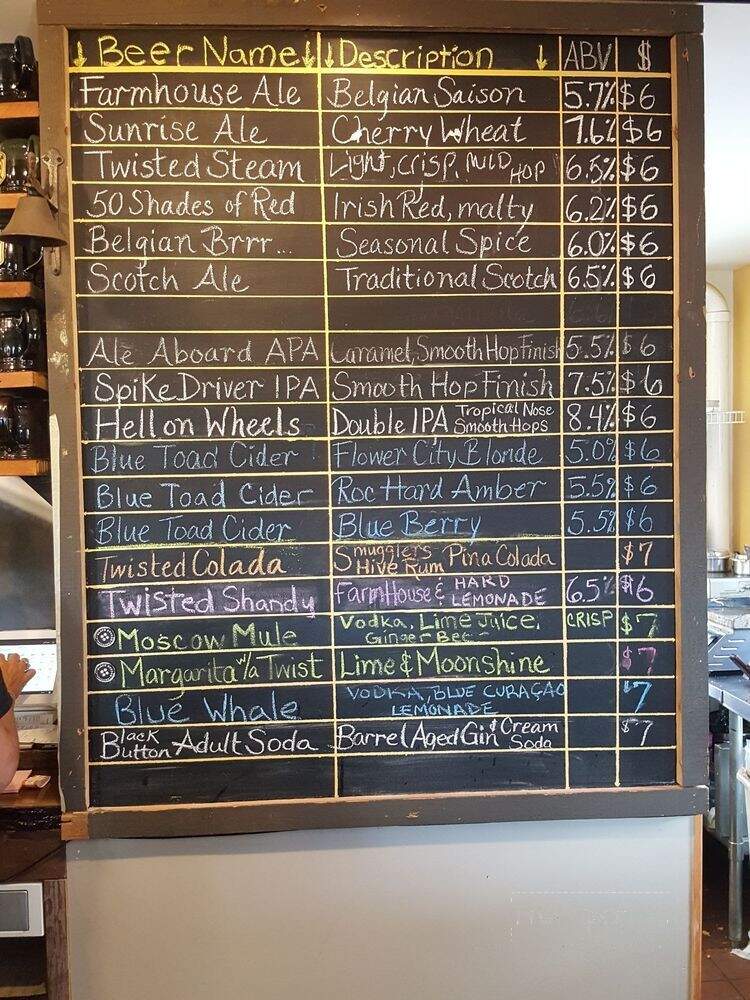 ↓ Beer Name ↓ ↓ Description ↓ ABV $
Farmhouse Ale Belgian Saison 5.7% $6
Sunrise Ale Cherry Wheat 7.6% $6
Twisted Steam Light, crisp, MILD HOP 6.5% $6
50 Shades of Red Irish Red, malty 6.2% $6
Belgian Brrr... Seasonal Spice 6.0% $6
Scotch Ale Traditional Scotch 6.5% $6
Ale Aboard APA Caramel, Smooth Hop Finish 5.5% $6
Spike Driver IPA Smooth Hop Finish 7.5% $6
Hell on Wheels Double IPA Tropical Nose Smooth Hops 8.4% $6
Blue Toad Cider Flower City Blonde 5.0% $6
Blue Toad Cider Roc Hard Amber 5.5% $6
Blue Toad Cider Blue Berry 5.5% $6
Twisted Colada Smugglers Hive Rum Pina Colada $7
Twisted Shandy FarmHouse & HARD LEMONADE 6.5% $6
Moscow Mule Vodka, Lime Juice, Ginger Beer CRISP $7
Margarita w/a Twist Lime & Moonshine $7
Blue Whale VODKA, BLUE CURAÇAO LEMONADE $7
Black Button Adult Soda Barrel Aged Gin & Cream Soda $7